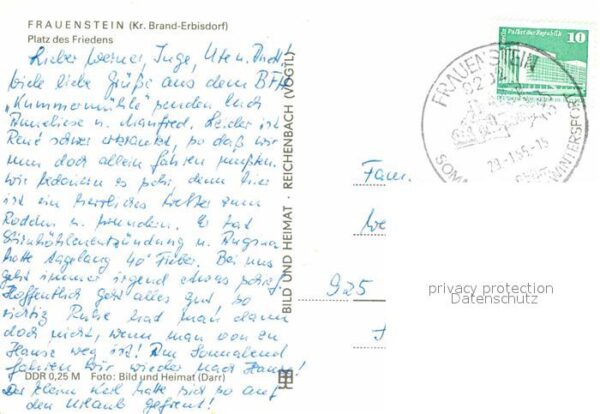 FRAUENSTEIN (Kr. Brand-Erbisdorf)
Platz des Friedens
Lieber Werner, Inge, Ute u.
viele liebe Grüße aus dem BFH
"Kummermühle" senden Euch
Anneliese u. Manfred. Leider ist
René schwer erkrankt, so daß wir
nun doch allein fahren mußten.
Wir bedauern es sehr, denn hier
ist ein herrliches Wetter zum
Rodeln u. wandern. Er hat
Stirnhöhlenentzündung u. Angina
hatte tagelang 40° Fieber. Bei uns
geht immer irgend etwas schief.
Hoffentlich geht alles gut so
richtig Ruhe hat man dann
doch nicht, wenn man von zu
Hause weg ist! Am Sonnabend
fahren wir wieder nach Hause!
DDR 0,25 M Foto: Bild und Heimat (Darr)
Der kleine Kerl hatte sich so auf
den Urlaub gefreut!
BILD UND HEIMAT · REICHENBACH (VOGTL)
Palast der Republik
10
FRAUENSTEIN
WINTERSPORT
Fam.
We
925
privacy protection
Datenschutz